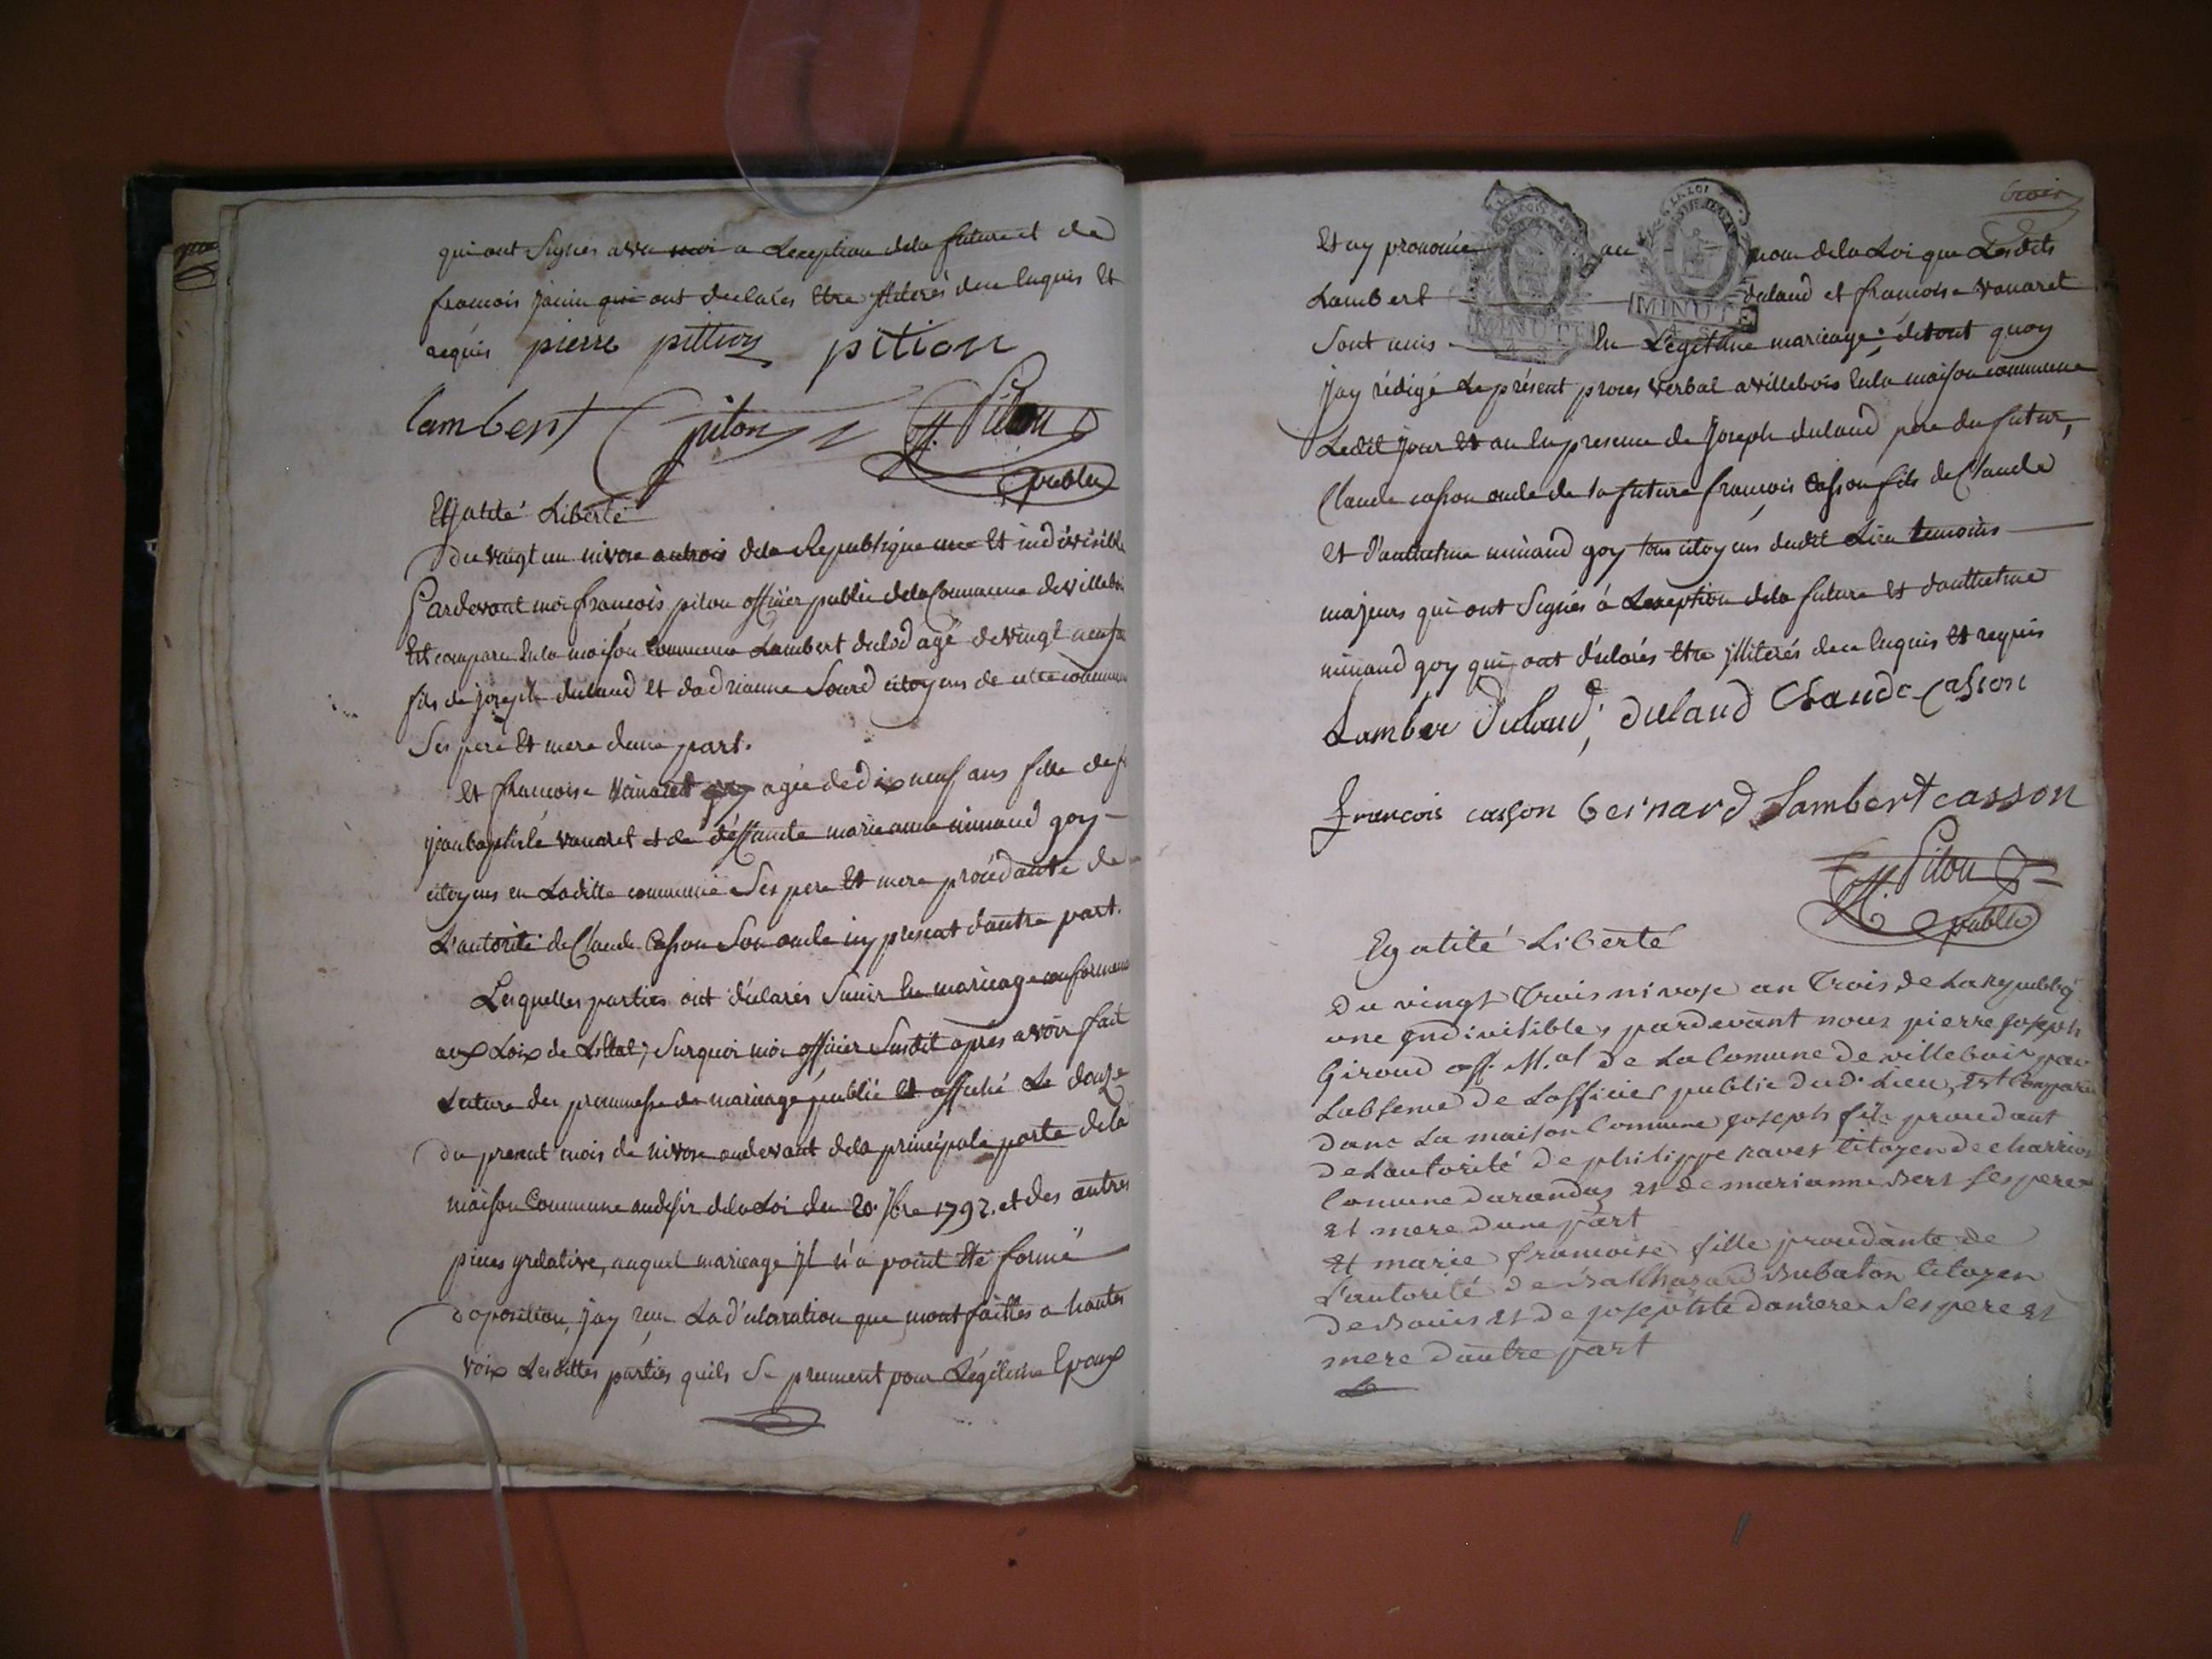 qui ont signés avec moi a Lexeption dela future et de
francois janin qui ont declarés Etre illiterés dece Enquis Et
requis pierre pittion pition
lambert piton ff. Piton
public
Egalité Liberté
Du vingt un nivose an trois dela Republique une Et indivisible
Pardevant moi francois piton officier public dela Commune de villebois
Est comparu Enla maison Commune Lambert dulod agé de vingt neuf
fils de joseph duland Et dadrianne Sourd citoyens de cette commune
Ses pere Et mere dune part.
Et francoise Vanaret agée de dix neuf ans fille de
jean baptiste vanaret et de deffunte marie anne minand goy
citoyens en Laditte commune Ses pere Et mere procédante de
L'autorité de Claude Casson Son oncle icy present dautre part.
Lesquelles parties ont déclarés Sunir En mariage conformement
aux Loix de L'Etat ; Surquoi moi officier Susdit après avoir fait
Lecture des promesse de mariage publié Et affiché Le douze
du present mois de nivose audevant dela principale porte dela
maison Commune audesir dela Loi du 20. 7bre 1792. et des autres
pieces yrelative, auquel mariage jl n'a point Eté formé
doposition, jay reçu La déclaration que mont faittes a hautes
voix Lesdittes parties quils Se prennent pour Légitime Epoux
trois
Et ay prononcé au nom dela Loi que Lesdits
Lambert duland et francoise vanaret
MINUTE MINUTE
Sont unis En Legitime mariage ; detout quoy
jay rédigé Le présent proces verbal a villebois Enla maison commune
Ledit jour Et an En presence de joseph duland pere du futur,
Claude casson oncle de la future francois Casson fils de Claude
et d'anthelme minand goy tous citoyens dudit Lieu temoins
majeurs qui ont Signés á Lexeption dela future Et danthelme
minand goy qui ont déclarés Etre jlliterés dece Enquis Et requis
Lamber duland, duland Claude Casson
francois casson bernard Lambert casson
ff. Piton
public
Egalité Liberté
Du vingt Trois nivose an Trois de La republiq
une yndivisible, pardevant nous pierre joseph
Giroud off. M.al de La Comune de villebois par
Labsence de Lofficier public dud. Lieu, Est Comparu
dans La maison Commune joseph fils procedant
de Lautorité de philippe ravet Citoyen de charrion
Comune darandas et de marianne Bert ses pere
et mere dune part
Et marie francoise fille procedante de
L'autorité de Balthazard Bubaton Citoyen
de Bouis et de josephte ses pere et
mere dautre part